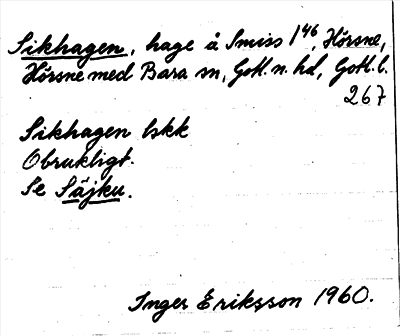 Sikhagen, hage å Smiss 1⁴⁶, Hörsne,
Hörsne med Bara sn, Gotl. n. hd, Gotl. l.
267
Sikhagen lskk
Obrukligt.
Se Säjku.
Inger Eriksson 1960.